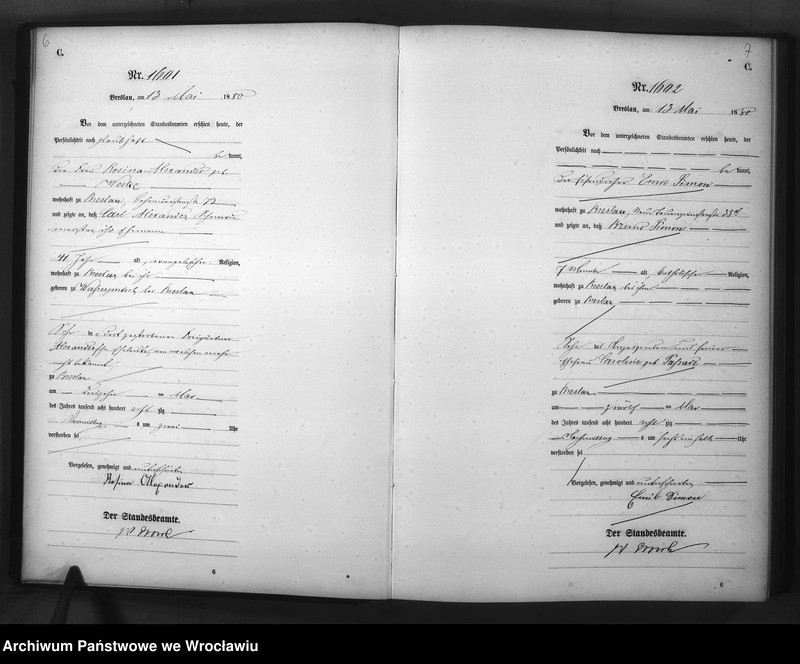 6
C.
Nr. 1601
Breslau, am 13 Mai 1880
Vor dem unterzeichneten Standesbeamten erschien heute, der
Persönlichkeit nach glaubhaft
be kannt,
die Frau Rosina Alexander geb
wohnhaft zu Breslau,
und zeigte an, daß Carl Alexander
ihr Ehemann
41 Jahr alt, evangelischer Religion,
wohnhaft zu Breslau bei ihr
geboren zu bei Breslau
Sohn de dort
Alexander'schen Eheleute, von welchen mehr
nicht bekannt
zu Breslau
am im Mai
des Jahres tausend acht hundert acht zig
Vormittag s um zwei Uhr
verstorben sei
Vorgelesen, genehmigt und unterschrieben
Rosina Alexander
Der Standesbeamte.
6
7
C.
Nr. 1602
Breslau, am 13 Mai 1880
Vor dem unterzeichneten Standesbeamten erschien heute, der
Persönlichkeit nach
be kannt,
der Emil Simon
wohnhaft zu Breslau,
und zeigte an, daß Bruno Simon
7 Monate alt, katholischer Religion,
wohnhaft zu Breslau bei ihm
geboren zu Breslau
Sohn des Anzeigenden und seiner
Ehefrau Caroline geb
zu Breslau
am zwölf ten Mai
des Jahres tausend acht hundert acht zig
Nachmittag s um Uhr
verstorben sei
Vorgelesen, genehmigt und unterschrieben
Emil Simon
Der Standesbeamte.
6
Archiwum Państwowe we Wrocławiu